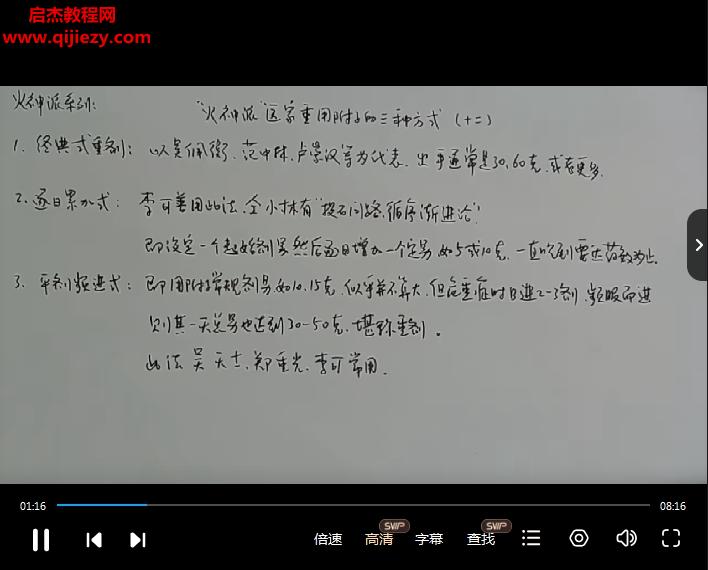 启杰教程网
www.qijiezy.com
火神派系列:
"火神派"医家重用附子的三种方式 (十二)
1. 经典式重剂: 以吴佩衡、范中林、卢崇汉等为代表, 出手通常是30,60克,或者更多.
2. 逐日累加式: 李可善用此法,全小林有"投石问路,循序渐进论"
即设定一个起始剂量然后逐日增加一个定量 如5或10克,一直吃到要达药效为止.
3. 平剂频进式: 即用附子常规剂量如10,15克,似乎并不算大,但危重症时日进2-3剂,频服而进
则其一天总量也达到30-50克,堪称重剂.
此法 吴天士,郑重光,李可常用.
01:16
08:16
倍速
高清
SVIP
字幕
查找
SVIP